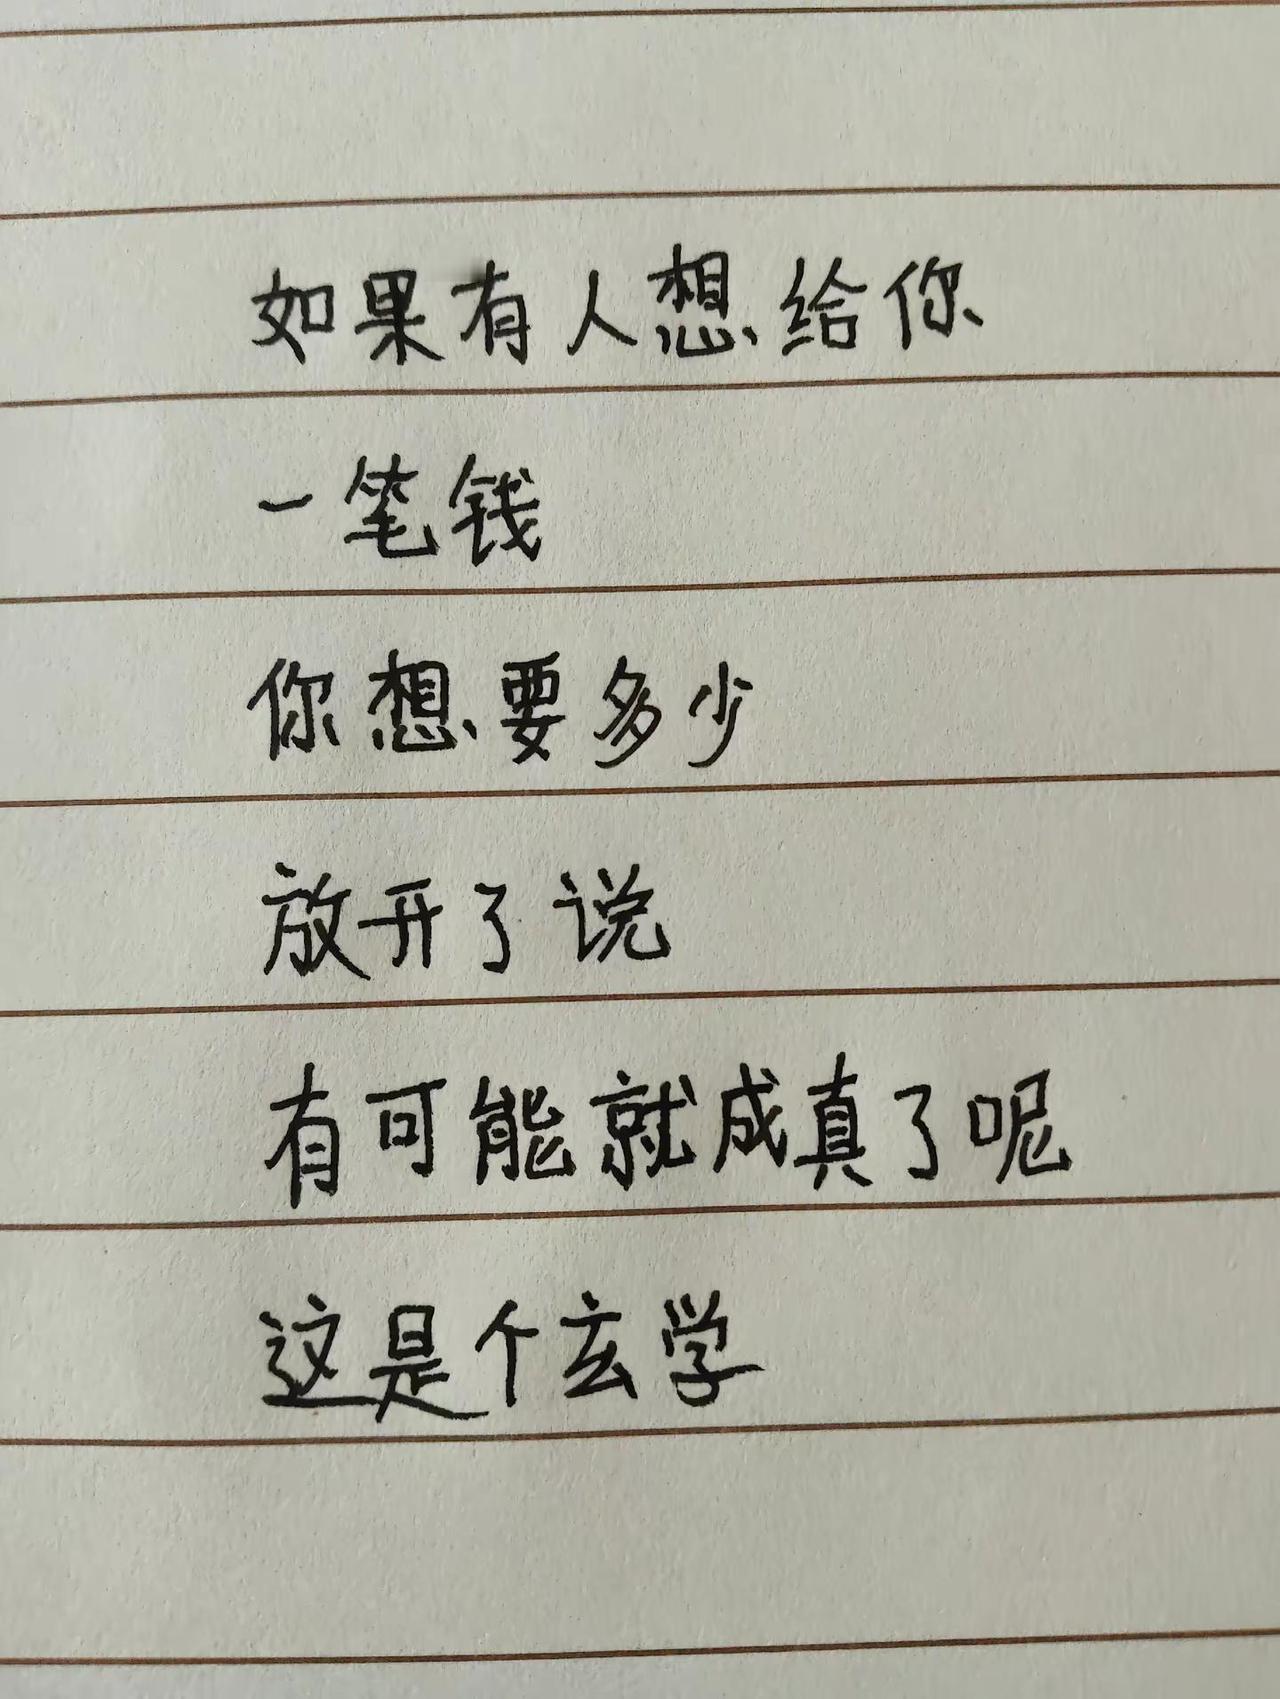 如果有人想给你
一笔钱
你想要多少
放开了说
有可能就成真了呢
这是个玄学